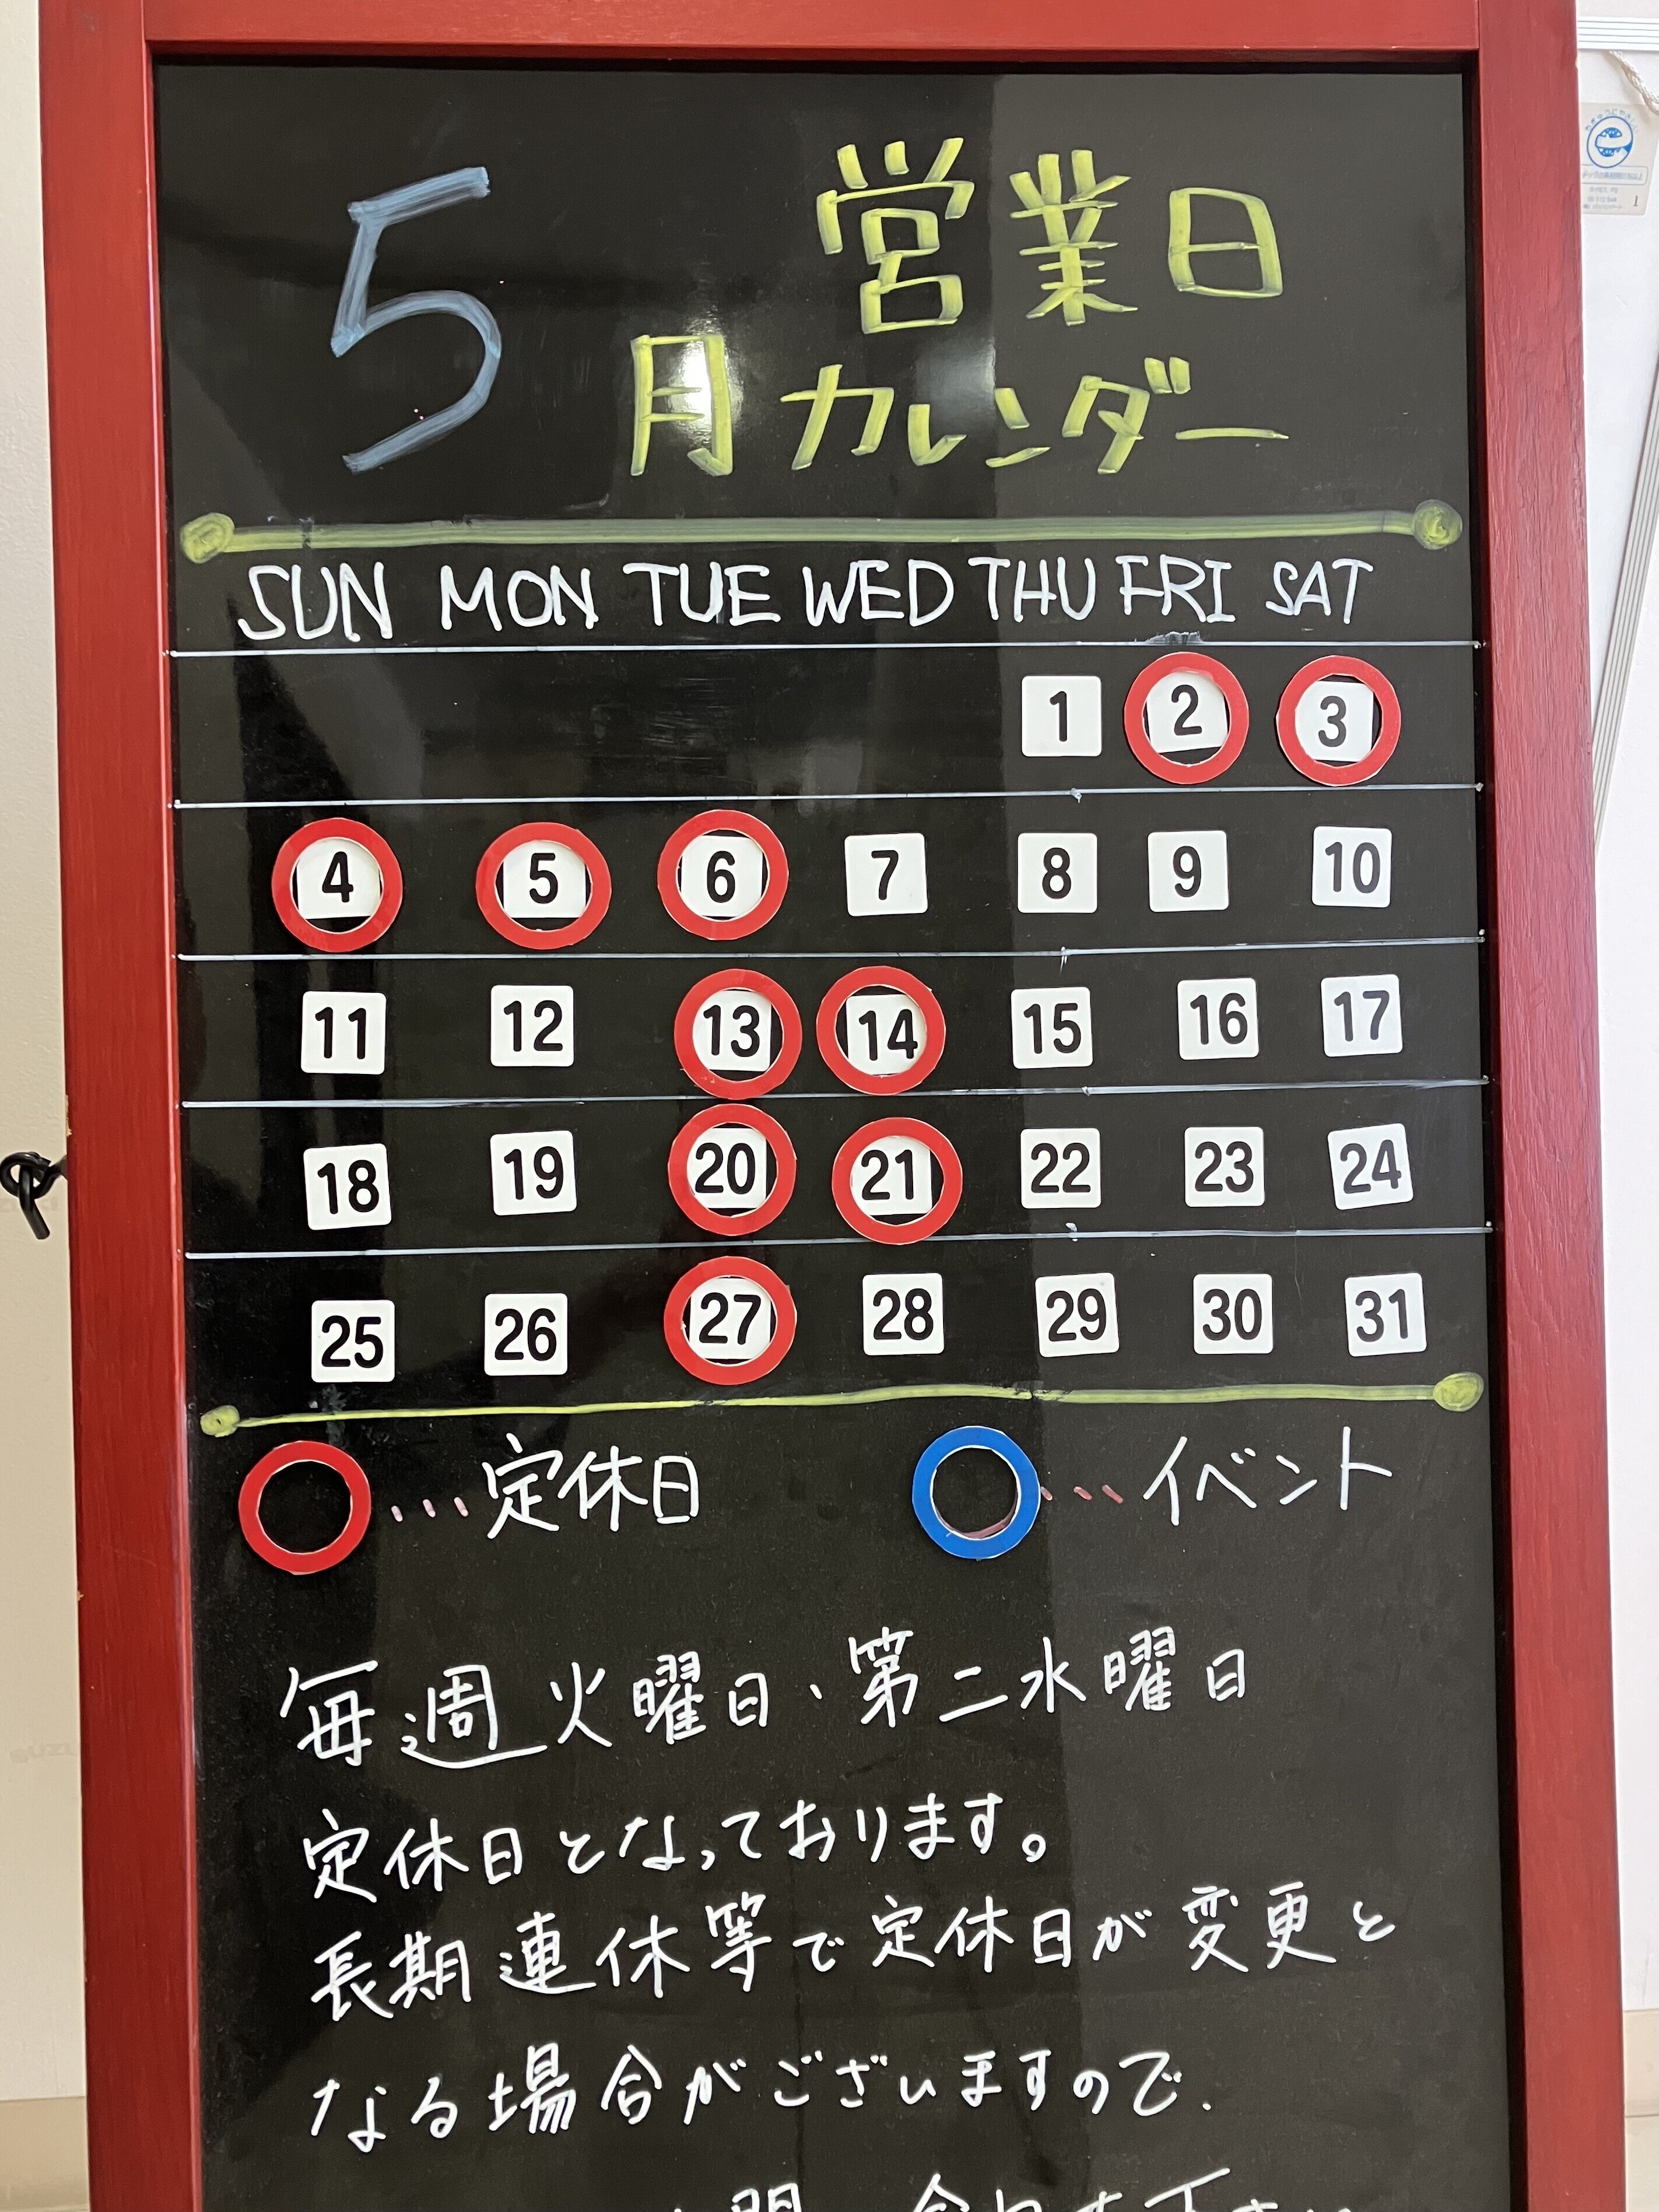 5 営業日
月カレンダー
SUN MON TUE WED THU FRI SAT
1 2 3
4 5 6 7 8 9 10
11 12 13 14 15 16 17
18 19 20 21 22 23 24
25 26 27 28 29 30 31
…定休日 …イベント
毎週火曜日、第二水曜日
定休日となっております。
長期連休等で定休日が変更と
なる場合がございますので、